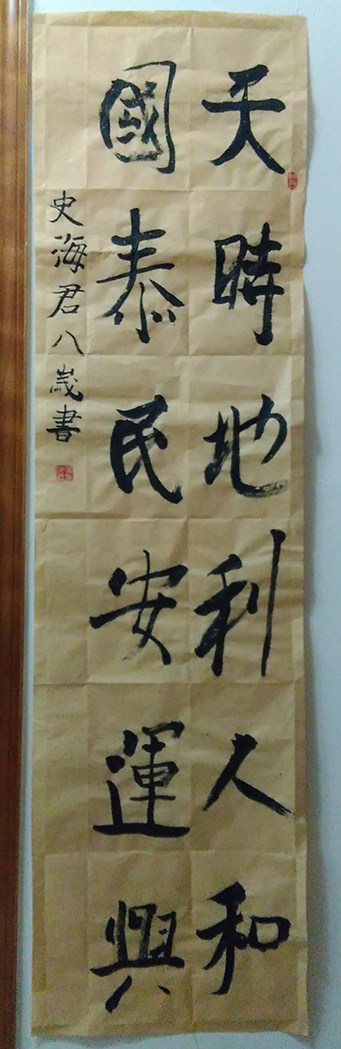 天時地利人和
國泰民安運興
史海君八歲書